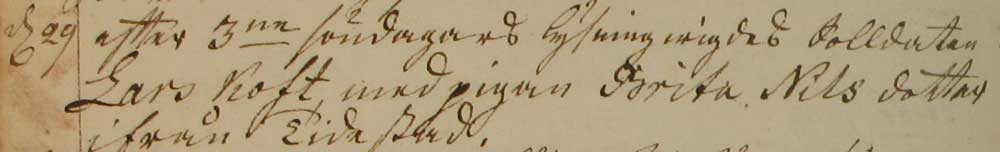 d 29 efter 3ne söndagars lysning wigdes Solldaten
Lars Koft med pigan Brita Nils dotter
ifrån Tidestad.